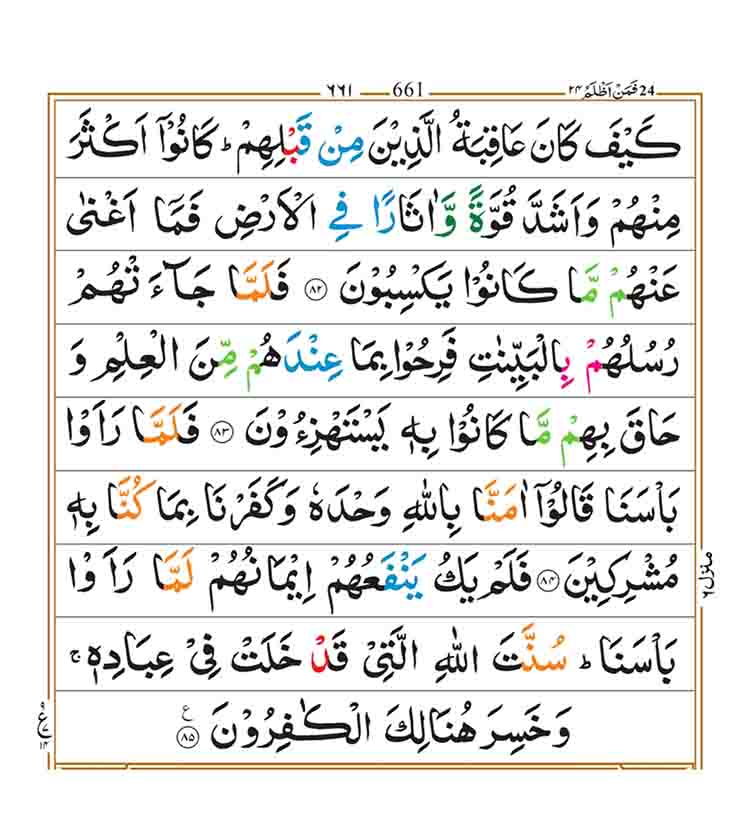 24 فَمَنْ اَظْلَمُ ۲۴ 661 ۶۶۱
كَيْفَ كَانَ عَاقِبَةُ الَّذِيْنَ مِنْ قَبْلِهِمْ ؕ كَانُوْۤا اَكْثَرَ
مِنْهُمْ وَاَشَدَّ قُوَّةً وَّاٰثَارًا فِي الْاَرْضِ فَمَاۤ اَغْنٰى
عَنْهُمْ مَّا كَانُوْا يَكْسِبُوْنَ ۸۲ فَلَمَّا جَآءَتْهُمْ
رُسُلُهُمْ بِالْبَيِّنٰتِ فَرِحُوْا بِمَا عِنْدَهُمْ مِّنَ الْعِلْمِ وَ
حَاقَ بِهِمْ مَّا كَانُوْا بِهٖ يَسْتَهْزِءُوْنَ ۸۳ فَلَمَّا رَاَوْا
بَاْسَنَا قَالُوْۤا اٰمَنَّا بِاللّٰهِ وَحْدَهٗ وَكَفَرْنَا بِمَا كُنَّا بِهٖ
مُشْرِكِيْنَ ۸۴ فَلَمْ يَكُ يَنْفَعُهُمْ اِيْمَانُهُمْ لَمَّا رَاَوْا
بَاْسَنَا ؕ سُنَّتَ اللّٰهِ الَّتِيْ قَدْ خَلَتْ فِيْ عِبَادِهٖ ۚ
وَخَسِرَ هُنَالِكَ الْكٰفِرُوْنَ ۸۵ ع
منزل ۶
۹
ع ۷
۱۴